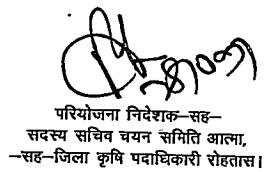 परियोजना निदेशक-सह-
सदस्य सचिव चयन समिति आत्मा,
-सह-जिला कृषि पदाधिकारी रोहतास।